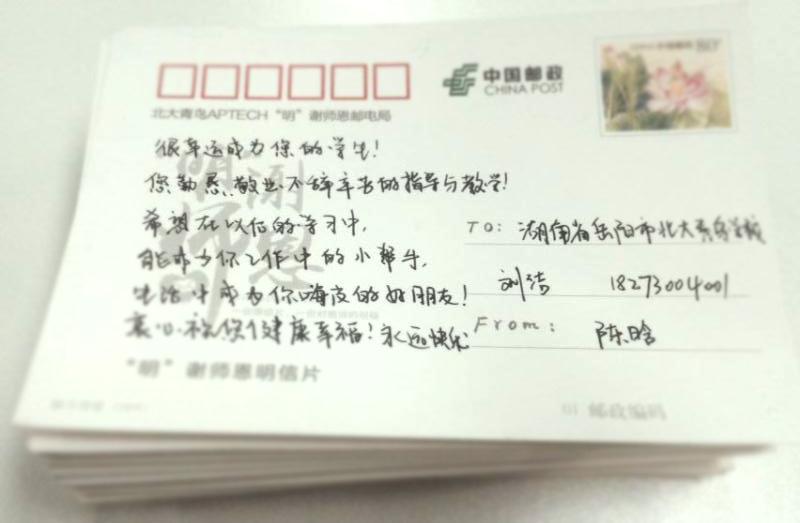 中国邮政
CHINA POST
北大青鸟APTECH “明”谢师恩邮电局
很幸运成为您的学生!
您勤恳、敬业、不辞辛苦的指导与教学!
希望在以后的学习中,
能成为你工作中的小帮手,
生活中成为你嗨皮的好朋友!
衷心祝您健康幸福!永远快乐
TO: 湖南省岳阳市北大青鸟学校
刘洁 18273004001
From: 陈晗
“明”谢师恩明信片
邮政编码